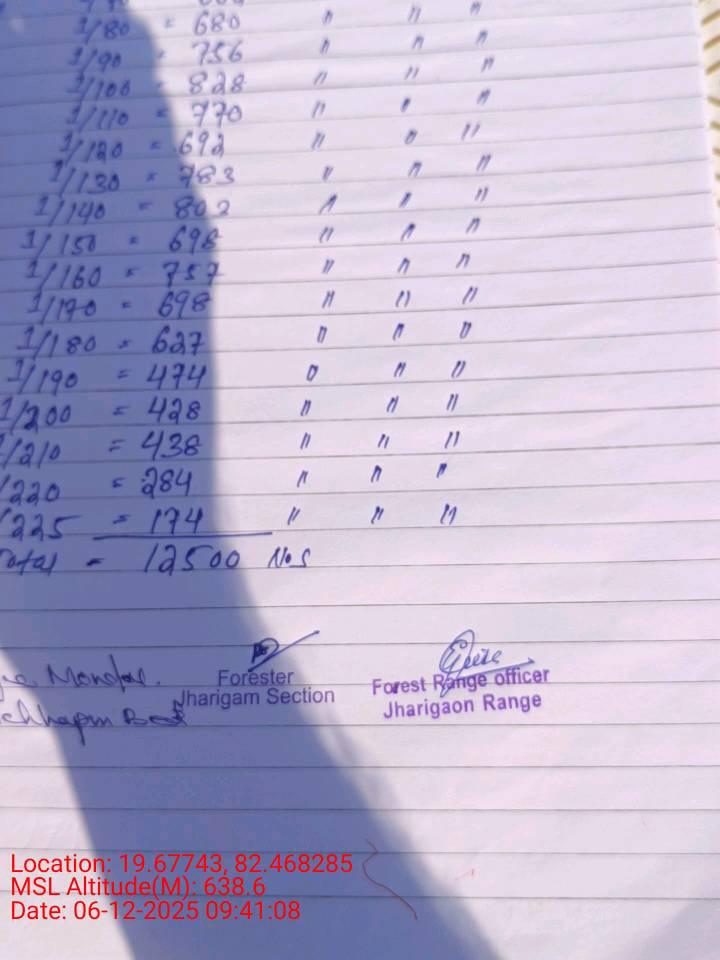 1/80 = 680 " " "
1/90 = 756 " " "
1/100 = 828 " " "
1/110 = 770 " " "
1/120 = 692 " " "
1/130 = 783 " " "
1/140 = 802 " " "
1/150 = 698 " " "
1/160 = 757 " " "
1/170 = 698 " " "
1/180 = 627 " " "
1/190 = 474 " " "
1/200 = 428 " " "
1/210 = 438 " " "
/220 = 284 " " "
/225 = 174 " " "
Total = 12500 Nos
Mondal.
Forester
Jharigam Section
Forest Range officer
Jharigaon Range
Beat
Location: 19.67743, 82.468285
MSL Altitude(M): 638.6
Date: 06-12-2025 09:41:08